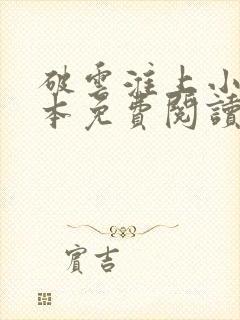 破雲淮上小
本免費閱讀
賓吉